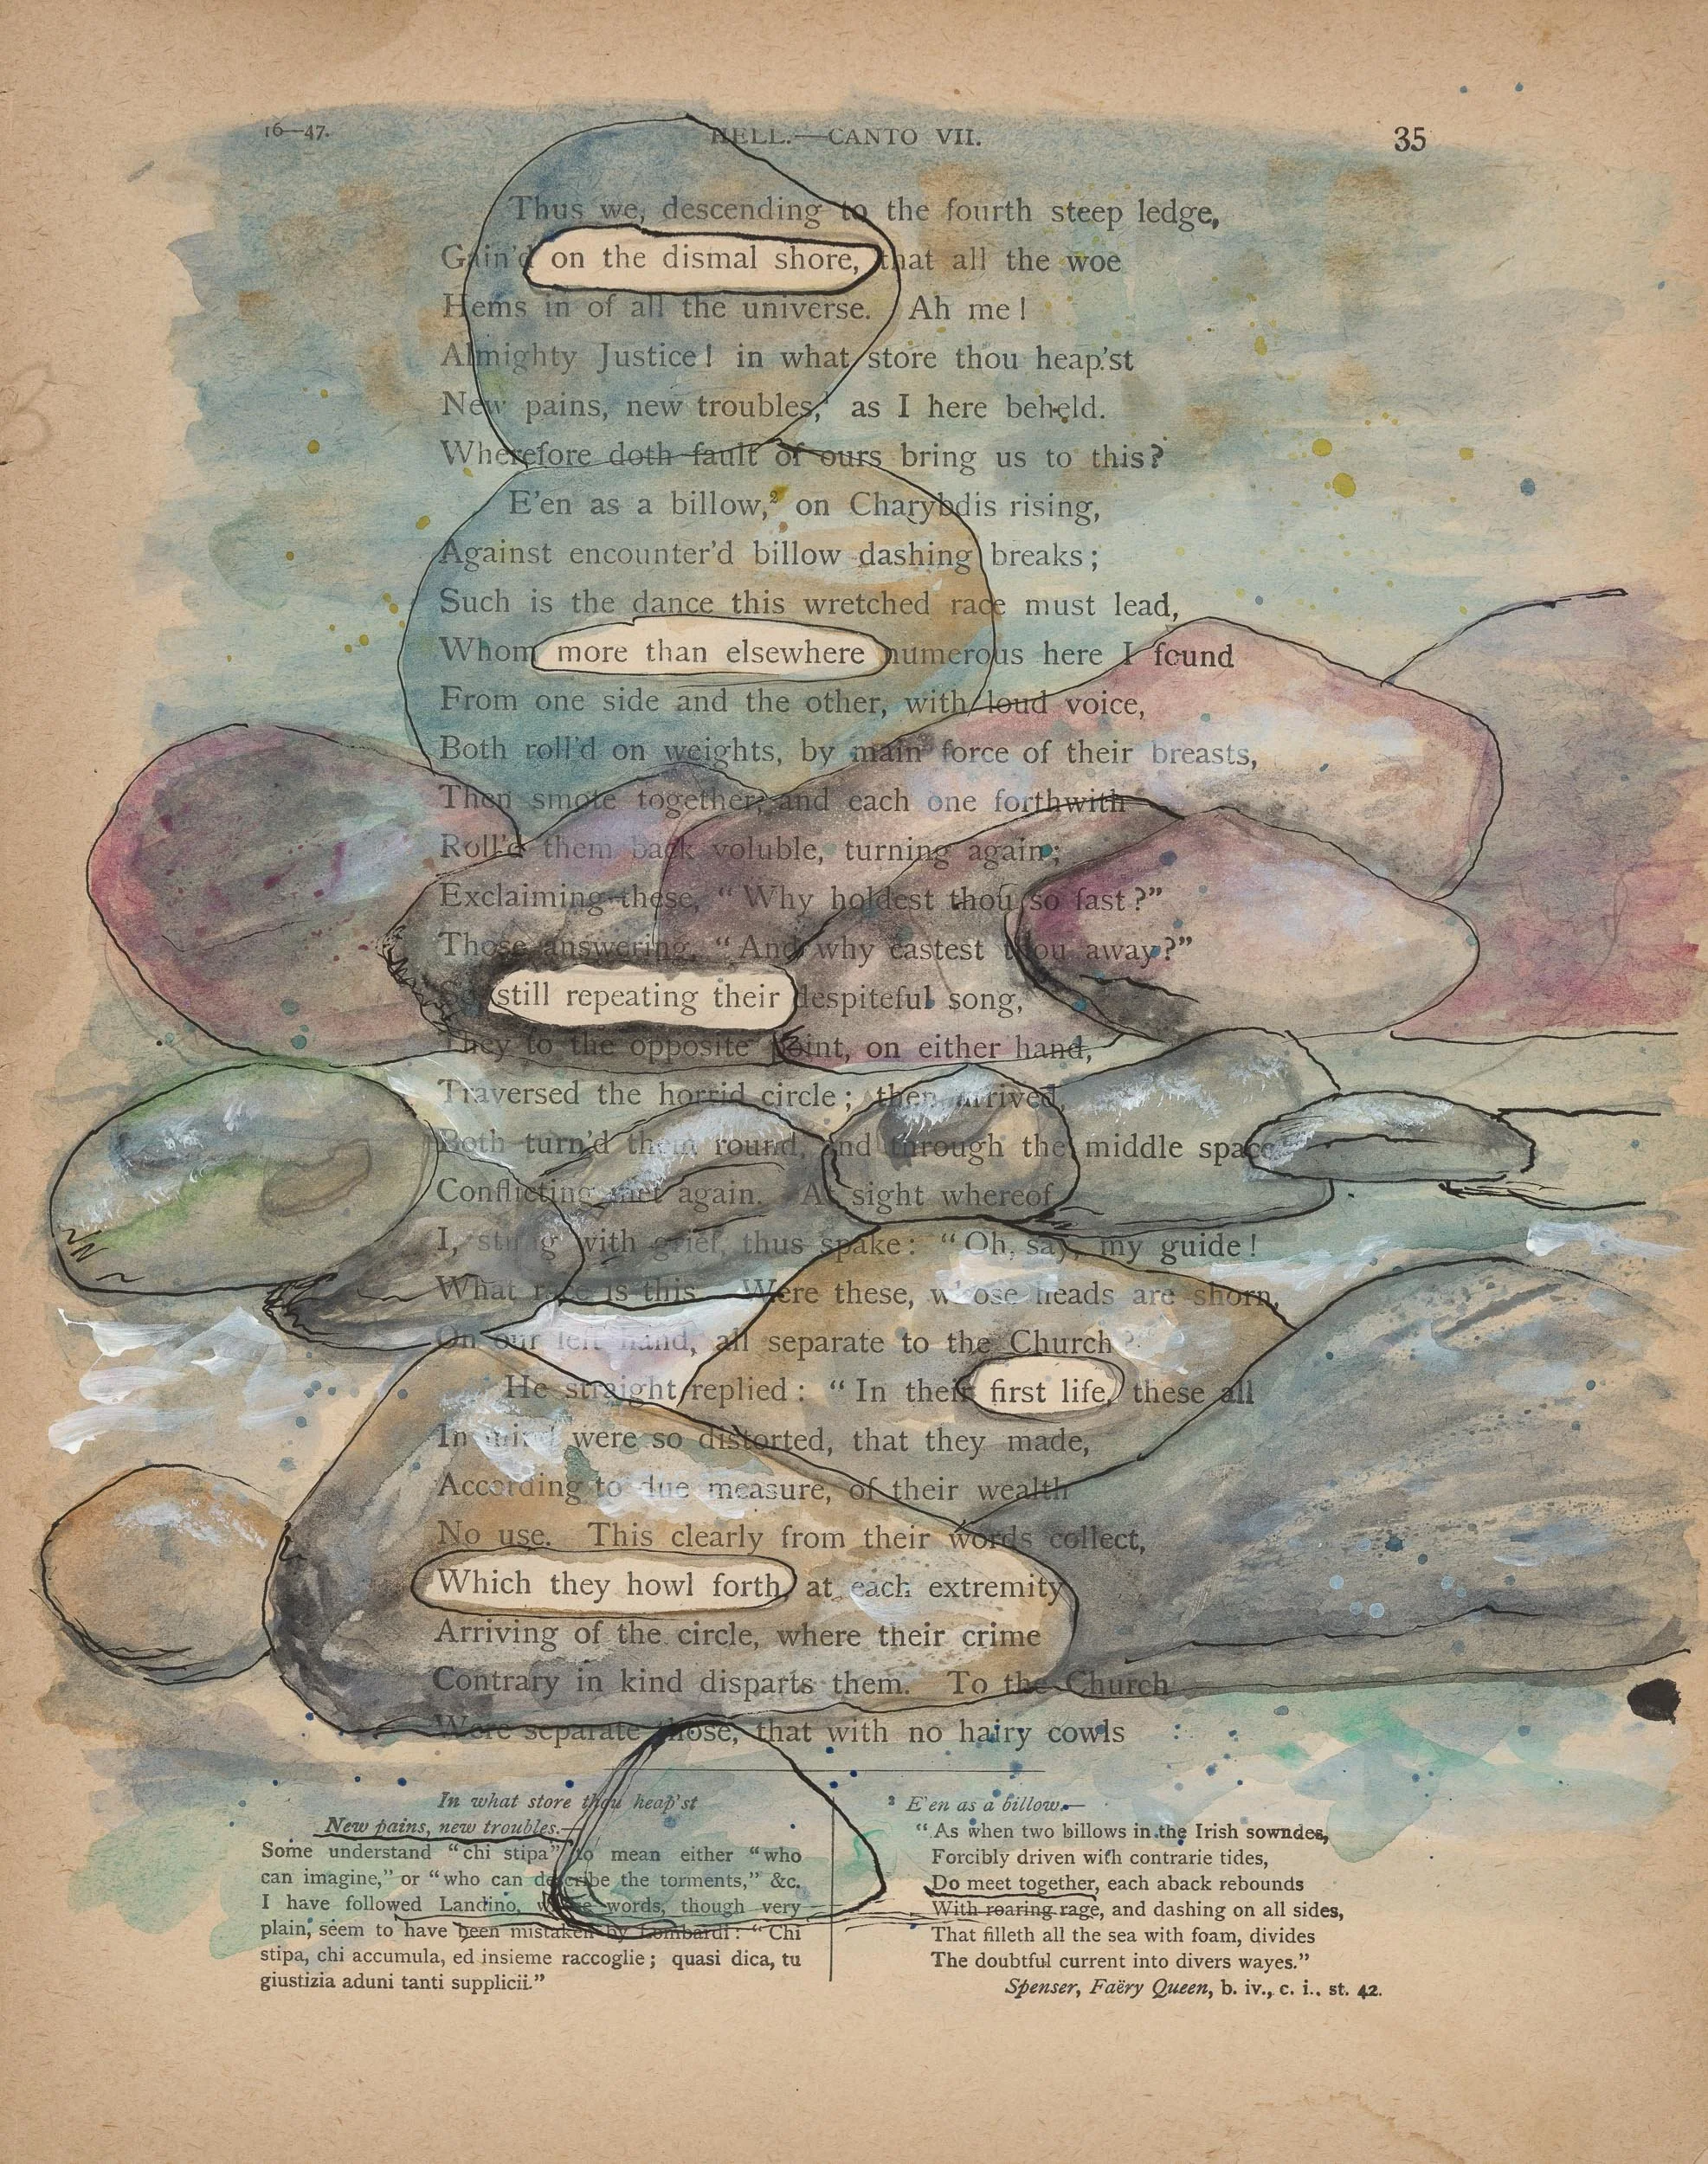 16—47. HELL.—CANTO VII. 35
Thus we, descending to the fourth steep ledge,
Gain'd on the dismal shore, that all the woe
Hems in of all the universe. Ah me!
Almighty Justice! in what store thou heap'st
New pains, new troubles,¹ as I here beheld.
Wherefore doth fault of ours bring us to this?
E'en as a billow,² on Charybdis rising,
Against encounter'd billow dashing breaks;
Such is the dance this wretched race must lead,
Whom more than elsewhere numerous here I found
From one side and the other, with loud voice,
Both roll'd on weights, by main force of their breasts,
Then smote together, and each one forthwith
Roll'd them back voluble, turning again;
Exclaiming these, “Why holdest thou so fast?”
Those answering, “And why castest thou away?”
So, still repeating their despiteful song,
They to the opposite point, on either hand,
Traversed the horrid circle; then arrived,
Both turn'd them round, and through the middle space
Conflicting met again. At sight whereof
I, stung with grief, thus spake: “Oh, say, my guide!
What race is this. Were these, whose heads are shorn,
On our left hand, all separate to the Church?
He straight replied: “In their first life, these all
In mind were so distorted, that they made,
According to due measure, of their wealth
No use. This clearly from their words collect,
Which they howl forth, at each extremity
Arriving of the circle, where their crime
Contrary in kind disparts them. To the Church
Were separate those, that with no hairy cowls
In what store thou heap'st
New pains, new troubles.—
Some understand “chi stipa” to mean either “who
can imagine,” or “who can describe the torments,” &c.
I have followed Landino, whose words, though very
plain, seem to have been mistaken by Lombardi: “Chi
stipa, chi accumula, ed insieme raccoglie; quasi dica, tu
giustizia aduni tanti supplicii.”
² E'en as a billow.—
“As when two billows in the Irish sowndes,
Forcibly driven with contrarie tides,
Do meet together, each aback rebounds
With roaring rage, and dashing on all sides,
That filleth all the sea with foam, divides
The doubtful current into divers wayes.”
Spenser, Faëry Queen, b. iv., c. i., st. 42.